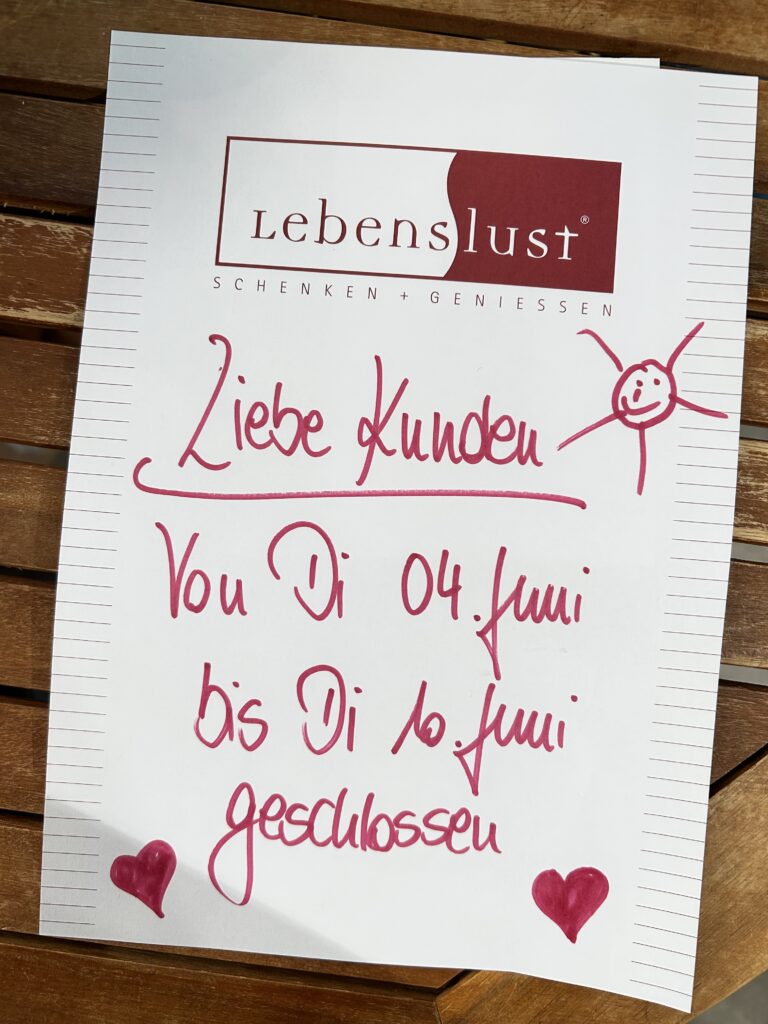 Lebenslust®
SCHENKEN + GENIESSEN
Liebe Kunden
Von Di 04. Juni
bis Di 10. Juni
geschlossen